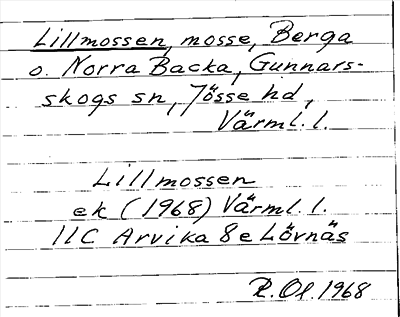 Lillmossen, mosse, Berga
o. Norra Backa, Gunnars-
skogs sn, Jösse hd,
Värml. l.
Lillmossen
ek (1968) Värml. l.
11C Arvika 8e Lövnäs
R. Ol. 1968